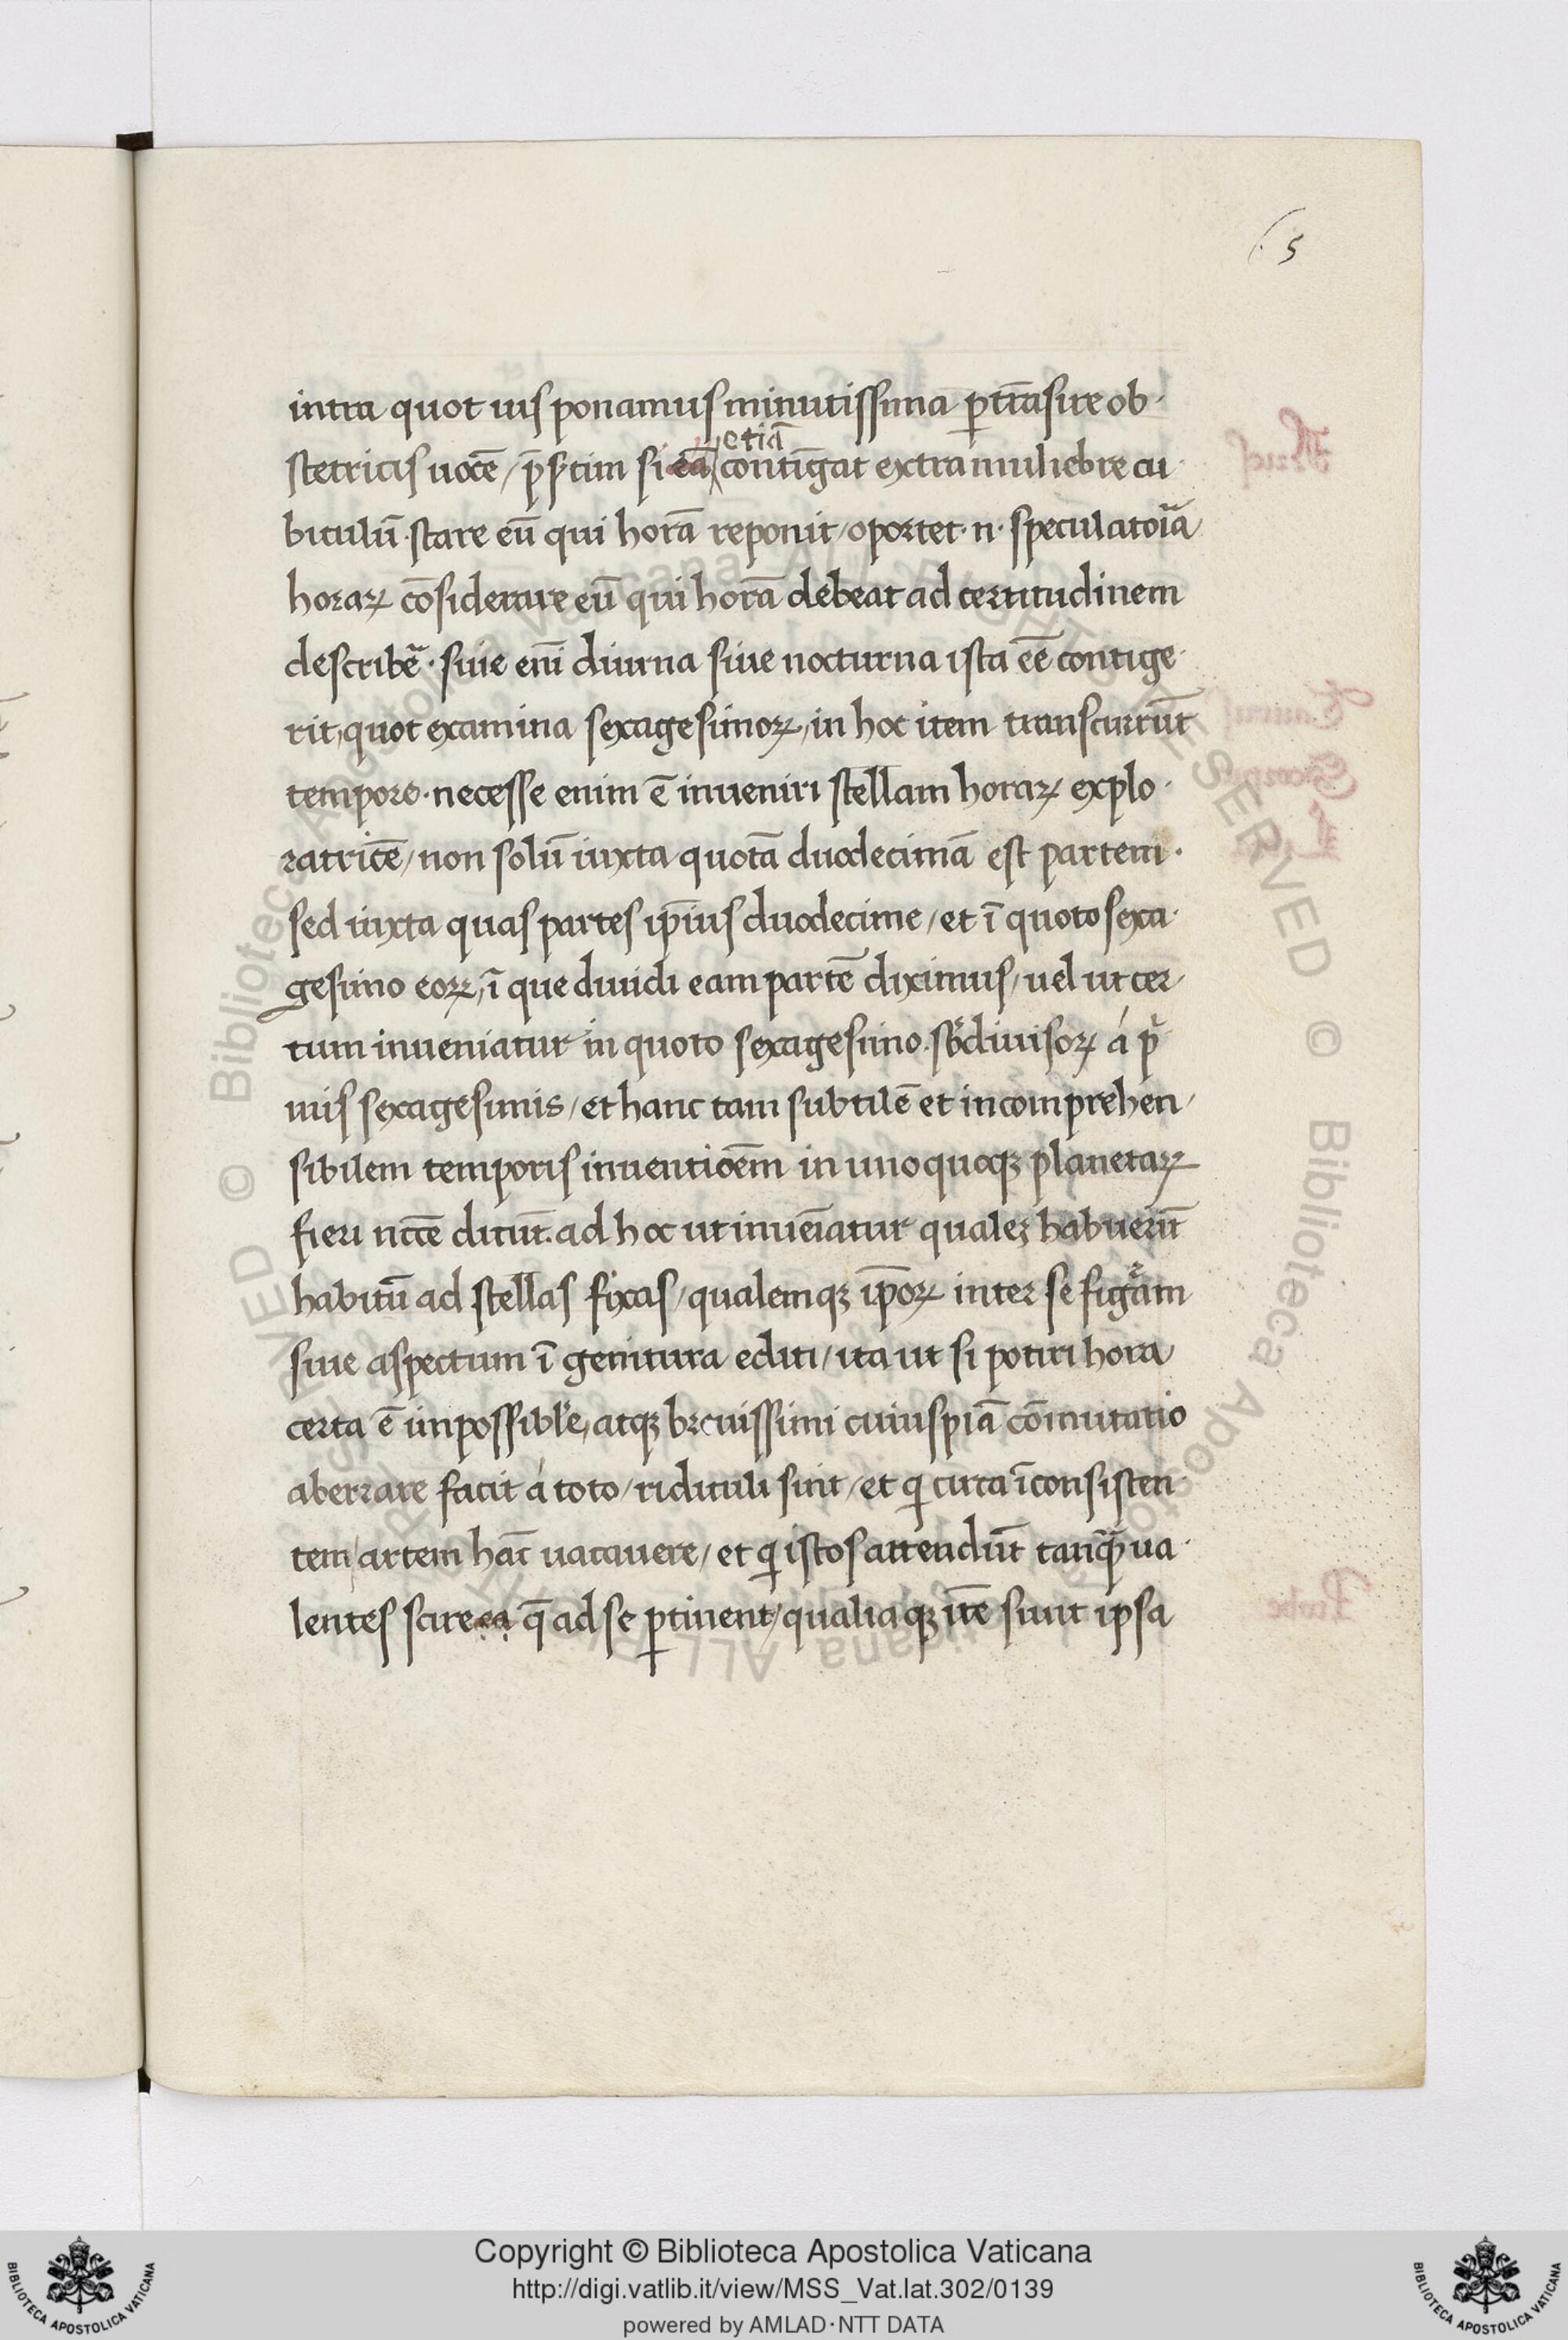 5
intra quot uis ponamus minutissima ꝑtrāsire ob·
stetricis uocē / p̄sẜtim si etiā contīgat extra muliebre cu·
biculū·stare eū qui horā reponit / oportet·n·speculatoīa
horaꝝ cōsiderare eū qui horā debeat ad certitudinem
describē·siue eni diurna siue nocturna ista eē contige·
rit, quot examina sexagesimoꝝ, in hoc item transcurrūt
tempore·necesse enim ē inueniri stellam horaꝝ explo·
ratricē / non solū iuxta quotā duodecimā est partem·
sed iuxta quas partes ip̄ius duodecime / et ī quoto sexa·
gesimo eoꝝ, ī que diuidi eam partē diximus / uel ut cer /
tum inueniatur in quoto sexagesimo. sb̄diuisoꝝ á p̄
mis sexagesimis / et hanc tam subtilē et incomprehen /
sibilem temporis inuentiōem in uno quoqꝫ planetaꝝ
fieri nccē dicūt. ad hoc ut inueīatur qualeꝫ habuerūt
habitū ad stellas fixas / qualemqꝫ ip̄oꝝ inter se figūam
siue aspectum ī genitura editi / ita ut si potiri hora
certa ē impossibl̓e, atqꝫ breuissimi cuiuspiā cōmutatio
aberrare facit á toto / ridiculi sūt / et qͥ circa īconsisten·
tem artem hāc uacauere / et qͥ istos attendūt tanqꝫ̄ ua·
lentes scire ea q̄ ad se ꝑtinent / qualiaqꝫ itē sunt ipsa
Copyright © Biblioteca Apostolica Vaticana
http://digi.vatlib.it/view/MSS_Vat.lat.302/0139
powered by AMLAD·NTT DATA